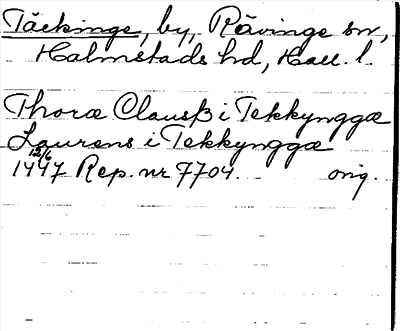 Täckinge, by, Rävinge sn,
Halmstads hd, Hall. l.
Thoræ Clausß i Tekkynggæ
Laurens i Tekkynggæ
12/6
1447 Rep. nr 7704. orig.